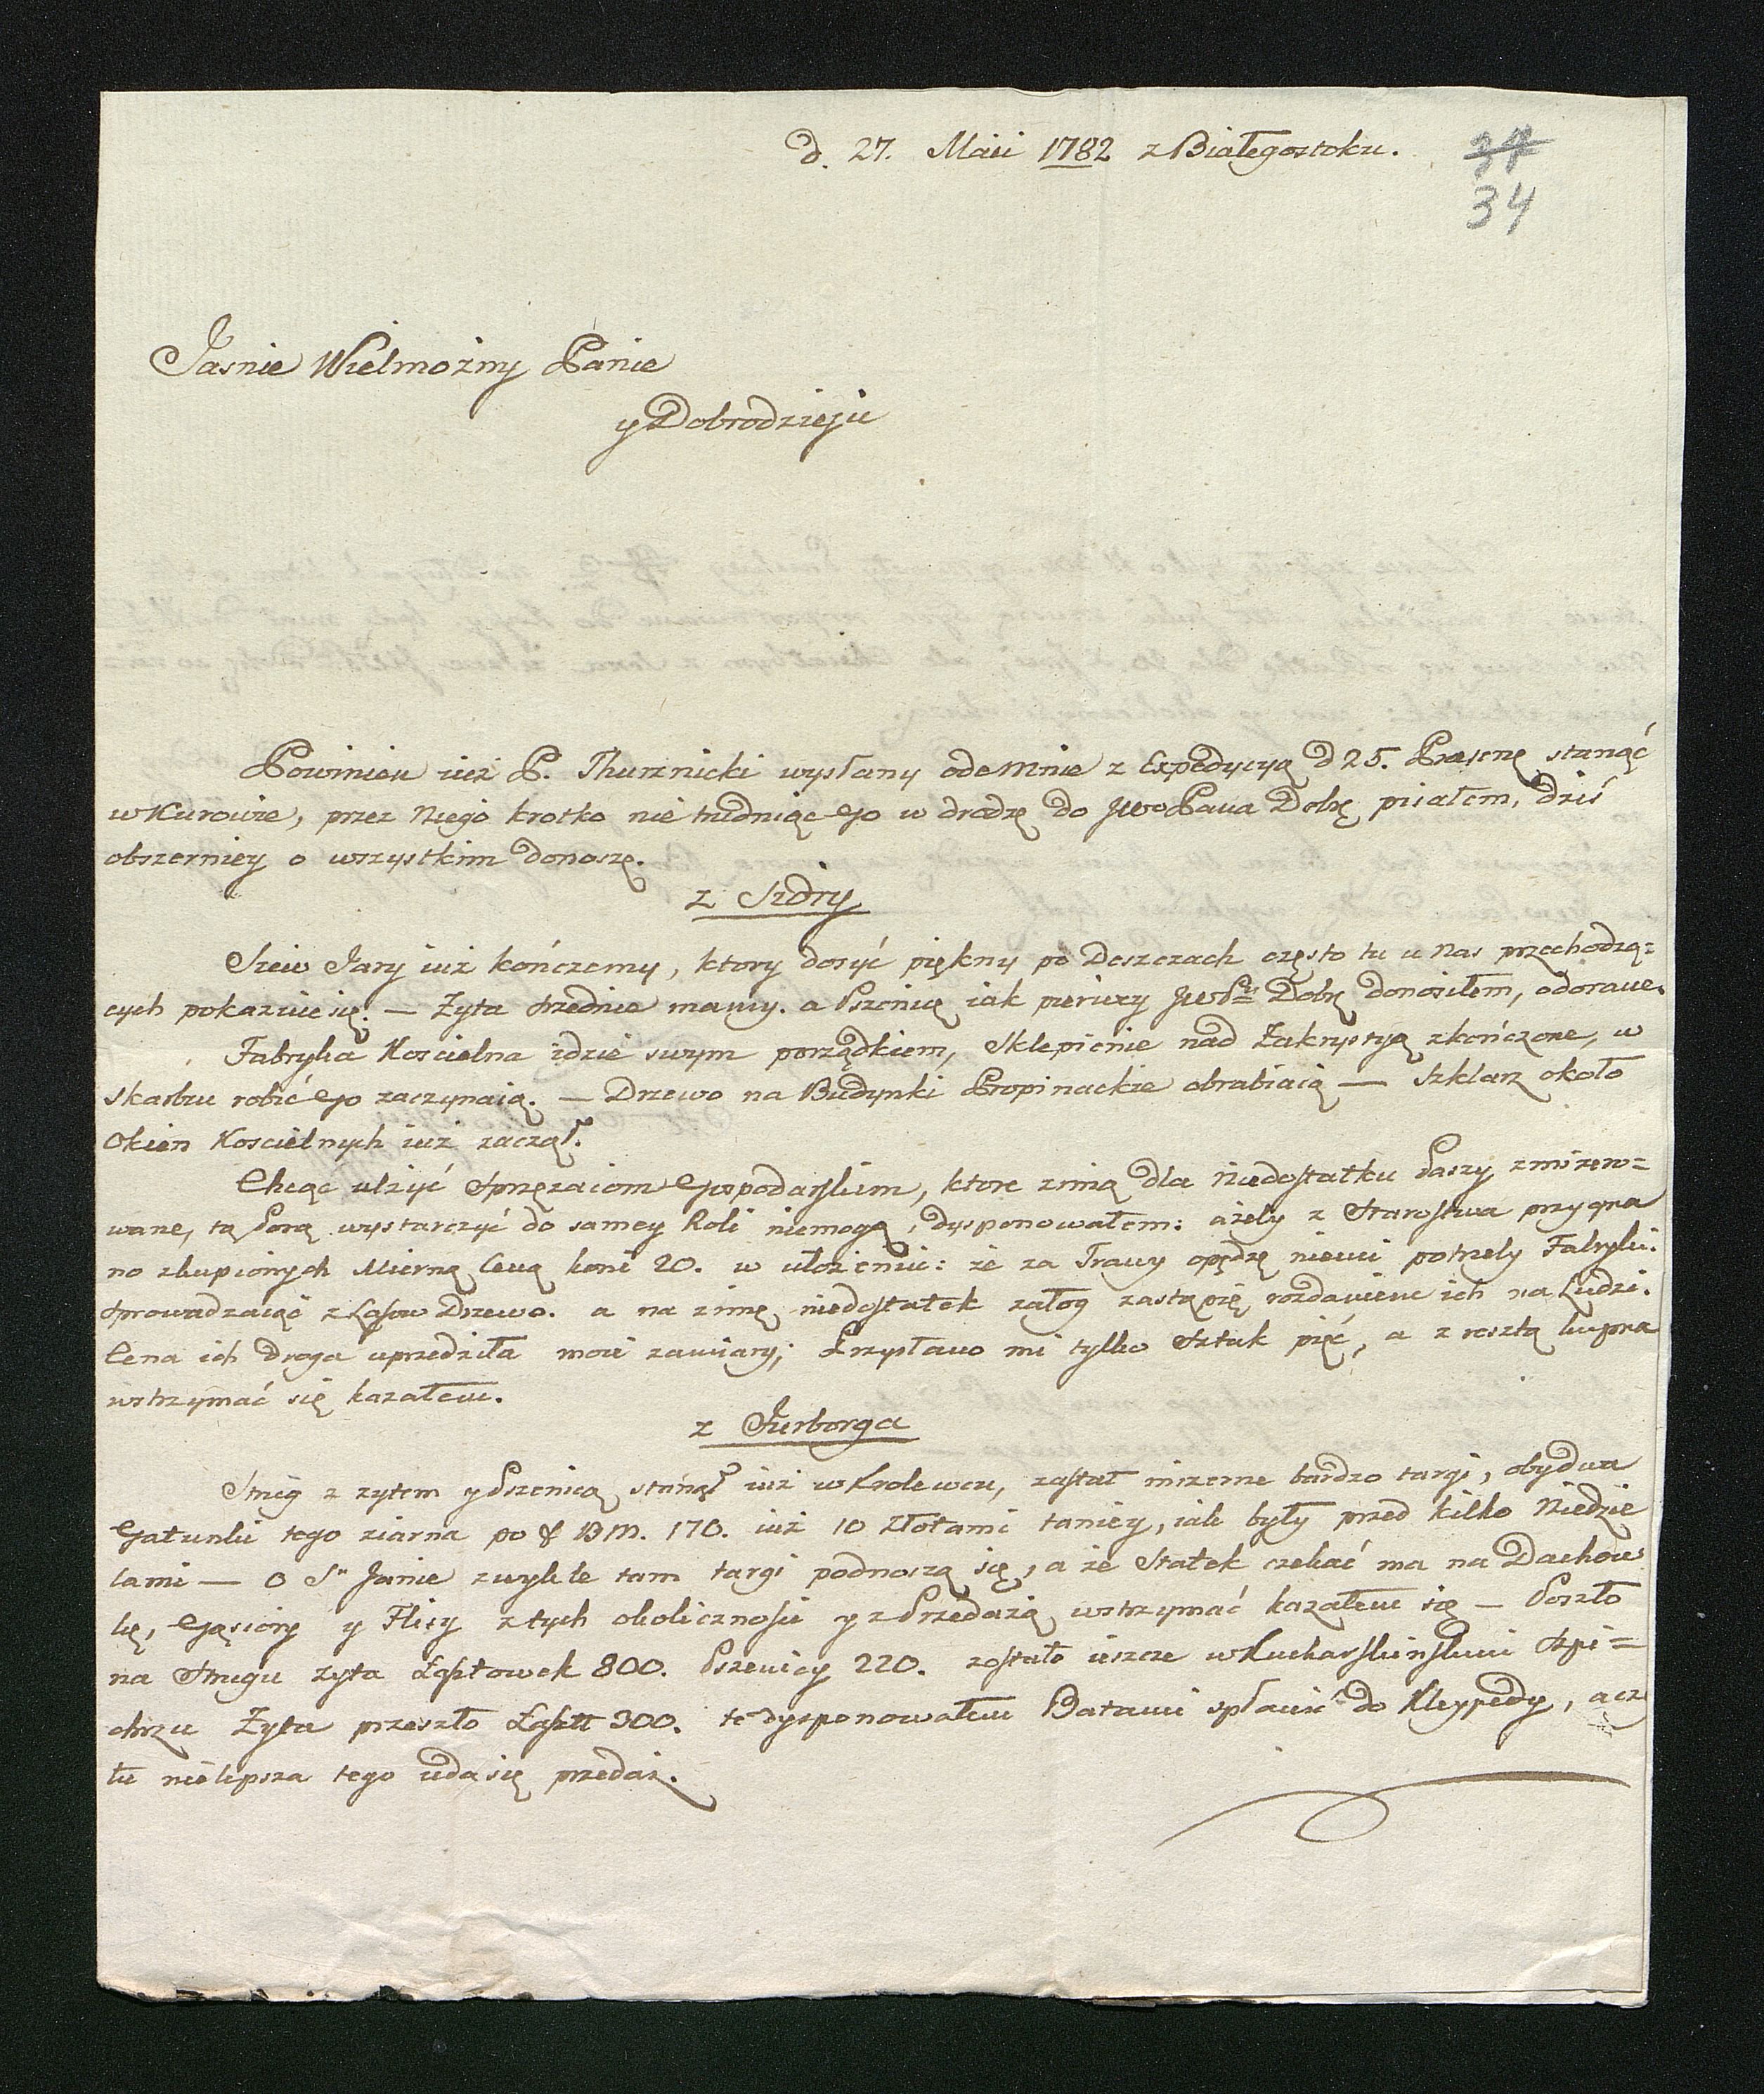 d. 27. Maii 1782 z Białegostoku.
34
Jasnie Wielmożny Panie
y Dobrodzieju
Powinien iuż P. Thurznicki wysłany odemnie z Expedycyą d 25. Præsent stanąć
w Kurowie, przez Niego krotko nie trudniąc go w drodze do JWo Pana Dobr. pisałem, dziś
obszerniey o wszystkim donoszę.
z Szdry
Siew Jary iuż kończemy, ktory dosyć piękny po Deszczach często tu u nas przechodzą=
cych pokazuie się. — Zyta srednie mamy. a Pszenicę iak pierwey JWoPu Dobr. donosiłem, odorane.
Fabryka Koscielna idzie swym porządkiem, Sklepienie nad Zakrystyą zkończone, w
Skarbcu robić go zaczynaią. — Drzewo na Budynki Propinackie obrabiaią — Szklarz około
Okien Koscielnych iuż zaczął.
Chcąc ulżyć sprzężaiom Gospodarskim, ktore zimą dla Niedostatku Paszy zmizero=
wane, tą Porą wystarczyć do samey Roli niemogą, dysponowałem: ażeby z Starostwa przygna
no zkupionych Mierną Ceną koni 20. w ułożeniu: że za Trawy opędzę niemi potrzeby Fabryki.
sprowadzaiąc z Lasow Drzewo. a na zimę niedostatek załog zastąpię rozdaniem ich na Ludzi.
Cena ich droga uprzedziła moie zamiary; Przysłano mi tylko Sztuk pięć, a z resztą kupna
wstrzymać się kazałem.
z Jurborga
Strug z zytem y Pszenicą stanął iuż w Krolewcu, zastał mizerne bardzo targi, obydwa
Gatunki tego ziarna po f BM. 170. iuż 10 Złotami taniey, iak były przed kilko Niedzie
lami — O Sn Janie zwykle tam targi podnoszą się, a że Statek czekać ma na Dachow
kę, Gąsiory y Flisy z tych okolicznosci y z Przedażą wstrzymać kazałem się — Poszło
na Strugu zyta Łasztowek 800. Pszenicy 220. zostało ieszcze w Kucharskińskim Szpi=
chrzu Zyta przeszło Łaszt 300. te dysponowałem Batami spławić do Kleypedy, acz
tu nielepsza tego uda się przedaż.